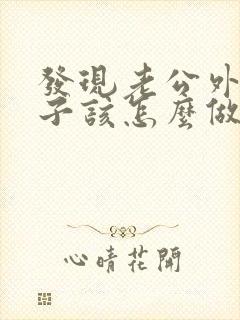 發現老公外
子該怎麼做
心晴花開